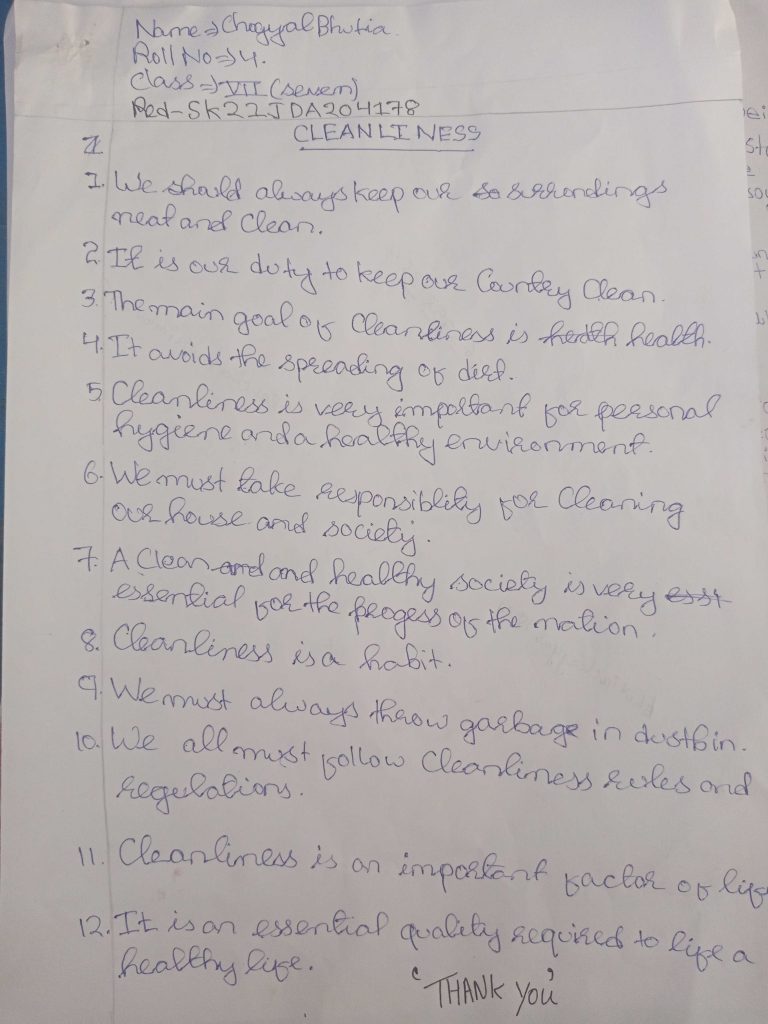 Name⇒Chogyal Bhutia.
Roll No⇒4.
Class⇒VII (seven)
Red-SK22JDA204178
CLEANLINESS
1. We should always keep our so surrondings
neat and Clean.
2. It is our duty to keep our Country Clean.
3. The main goal of Cleanliness is health health.
4. It avoids the spreading of dirt.
5 Cleanliness is very important for personal
hygiene and a healthy environment.
6. We must take responsiblity for Cleaning
our house and society.
7. A Clean and and healthy society is very esst
essential for the progess of the nation.
8. Cleanliness is a habit.
9. We must always throw garbage in dustbin.
10. We all must follow Cleanliness rules and
regulations.
11. Cleanliness is an important factor of life
12. It is an essential quality required to life a
healthy life.
‘THANK YOU’